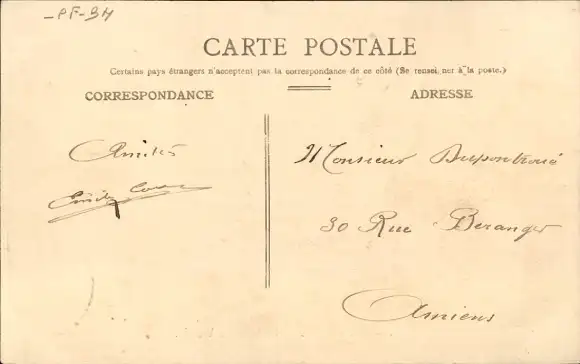 PF-34
CARTE POSTALE
Certains pays étrangers n'acceptent pas la correspondance de ce côté (Se renseigner à la poste.)
CORRESPONDANCE
ADRESSE
Amitiés
Monsieur Dupontroué
30 Rue Beranger
Amiens